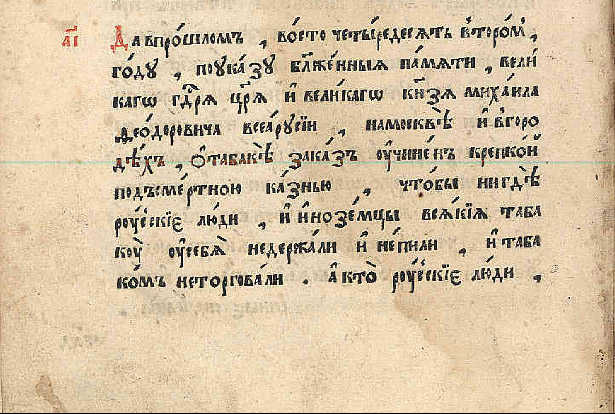 а҃і Да в про́шломъ , во сто четы́редесятъ второ́мъ ,
году́ , по ука́зу бл҃же́нныя па́мяти , вели́
кагѡ гдⷭ҇ря цр҃я и҆ вели́кагѡ кн҃зя михаи́ла
ѳео́доровича всеа̀ русі́и , на москвѣ̀ и҆ в горо
дѣ́хъ , ѡ҆ табакѣ̀ зака́зъ оу҆чине́нъ крепко́й
подъ сме́ртною ка́знью , что́бы нигдѣ̀
роу́сскіе лю́ди , и҆ и҆нозе́мцы вся́кія таба
коу̀ оу҆ себѧ̀ не держа́ли и҆ не пи́ли , и҆ таба
ко́мъ не торгова́ли . а҆ кто̀ роу́сскіе лю́ди ,